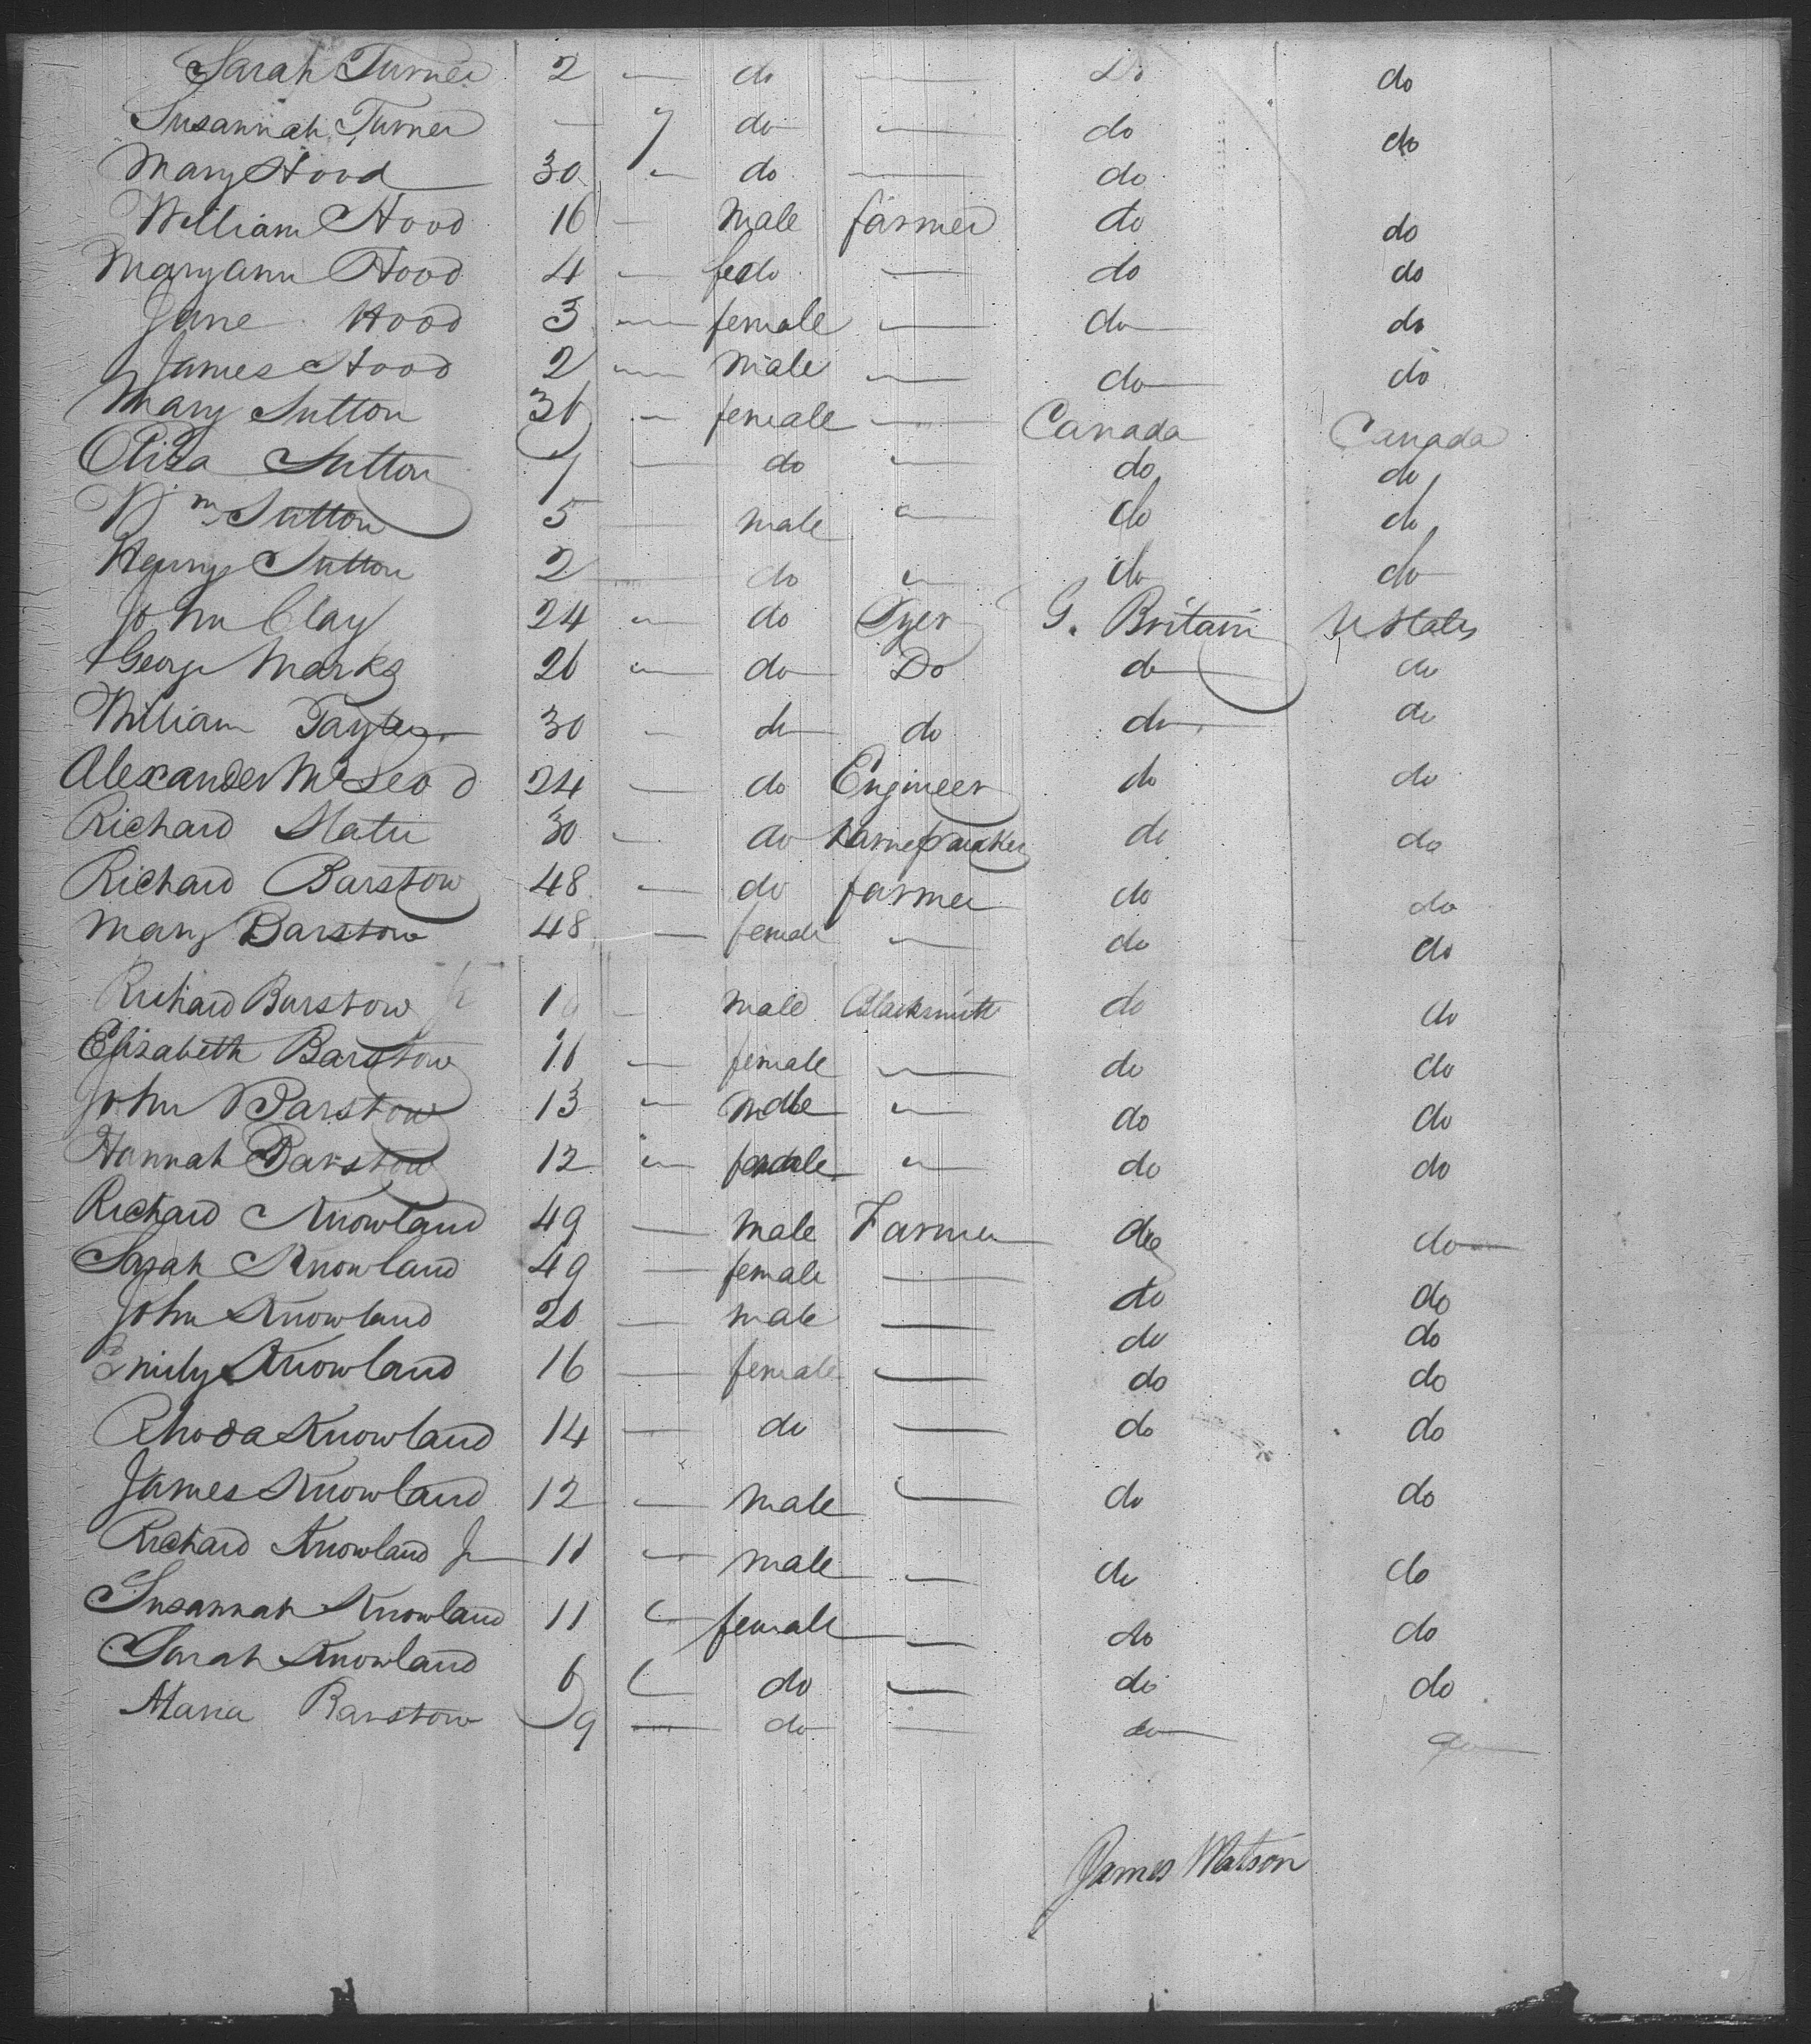 Sarah Turner 2 — do — Do do
Susannah Turner — 7 do — do do
Mary Hood 30 — do — do
William Hood 16 — Male farmer do do
Maryann Hood 4 — fedo — do do
Jane Hood 3 — female — do do
James Hood 2 — Male — do do
Mary Sutton 36 — female — Canada Canada
Eliza Sutton 7 — do — do do
Wm Sutton 5 — male — do do
Henry Sutton 2 — do — do do
John Clay 24 — do Dyer G. Britain U States
George Marks 26 — do Do do do
William Tayler 30 — do do do do
Alexander McLeod 24 — do Engineer do do
Richard Slater 30 — do do do
Richard Barstow 48 — do farmer do do
Mary Barstow 48 — female — do do
Richard Barstow Jr — Male Blacksmith do do
Elizabeth Barstow 16 — female — do do
John Barstow 13 — Male — do do
Hannah Barstow 12 — female — do do
Richard Knowland 49 — Male Farmer do do
Sarah Knowland 49 — female — do do
John Knowland 20 — male — do do
Emily Knowland 16 — female — do do
Rhoda Knowland 14 — do — do do
James Knowland 12 — Male — do do
Richard Knowland Jr 11 — Male — do do
Susannah Knowland 11 — female — do do
Sarah Knowland 6 — do — do do
Maria Barstow 9 — do — do do
James Watson